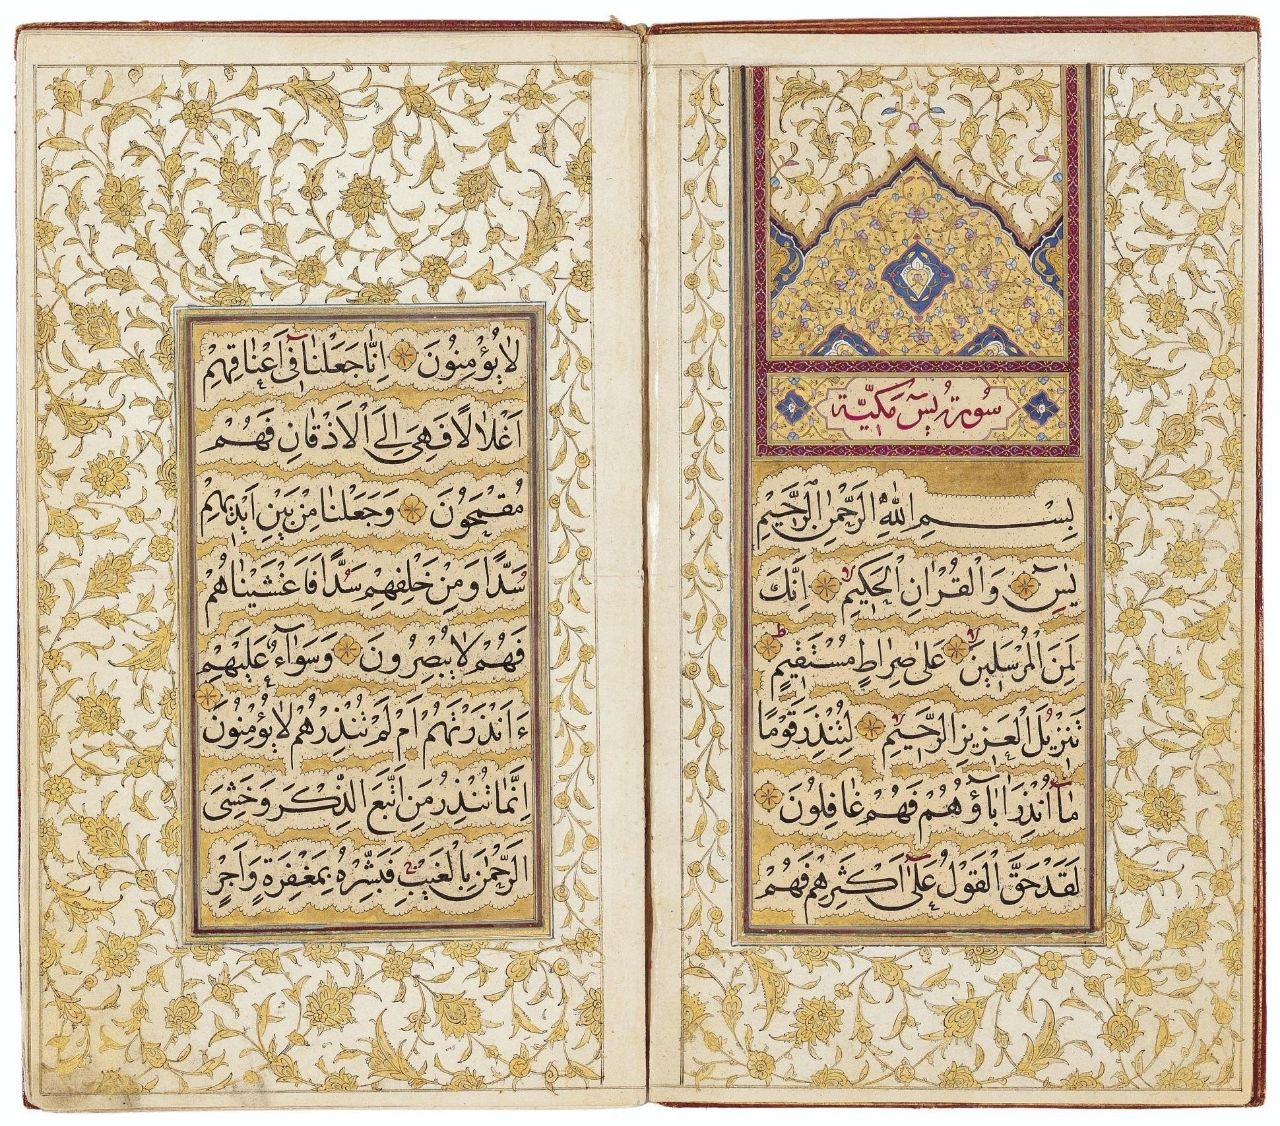 سورة يس مكية
بِسْمِ اللهِ الرَّحْمٰنِ الرَّحِيمِ
يٰسٓ وَالْقُرْاٰنِ الْحَكِيمِ لا اِنَّكَ
لَمِنَ الْمُرْسَلِينَ لا عَلٰى صِرَاطٍ مُسْتَقِيمٍ ط
تَنْزِيلَ الْعَزِيزِ الرَّحِيمِ لا لِتُنْذِرَ قَوْمًا
مَٓا اُنْذِرَ اٰبَٓاؤُهُمْ فَهُمْ غَافِلُونَ
لَقَدْ حَقَّ الْقَوْلُ عَلٰٓى اَكْثَرِهِمْ فَهُمْ
لَا يُؤْمِنُونَ اِنَّا جَعَلْنَا فٓى اَعْنَاقِهِمْ
اَغْلَالًا فَهِىَ اِلَى الْاَذْقَانِ فَهُمْ
مُقْمَحُونَ وَجَعَلْنَا مِنْ بَيْنِ اَيْدِيهِمْ
سَدًّا وَمِنْ خَلْفِهِمْ سَدًّا فَاَغْشَيْنَاهُمْ
فَهُمْ لَا يُبْصِرُونَ وَسَوَٓاءٌ عَلَيْهِمْ
ءَاَنْذَرْتَهُمْ اَمْ لَمْ تُنْذِرْهُمْ لَا يُؤْمِنُونَ
اِنَّمَا تُنْذِرُ مَنِ اتَّبَعَ الذِّكْرَ وَخَشِىَ
الرَّحْمٰنَ بِالْغَيْبِ ج فَبَشِّرْهُ بِمَغْفِرَةٍ وَاَجْرٍ